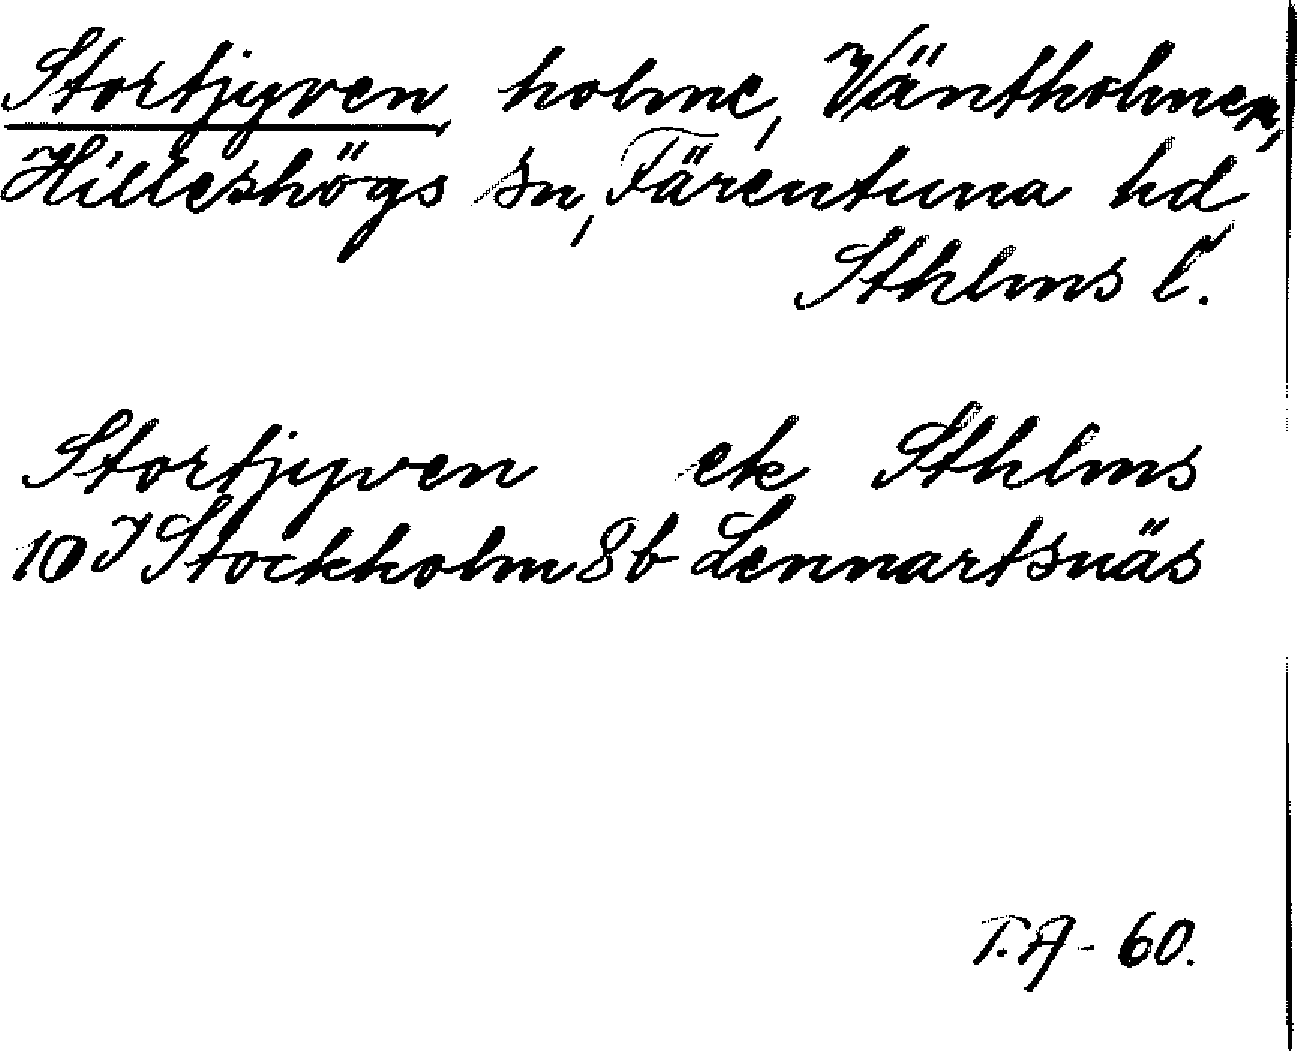 Stortjyven, holme, Väntholmen,
Hilleshögs sn, Färentuna hd,
Sthlms l.
Stortjyven ek Sthlms
10 I Stockholm 8b Lennartsnäs
T.A - 60.